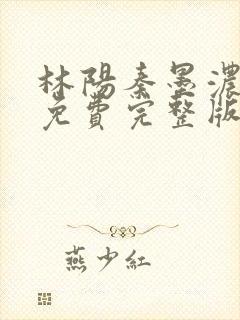 林陽秦墨濃
免費完整版
燕少紅